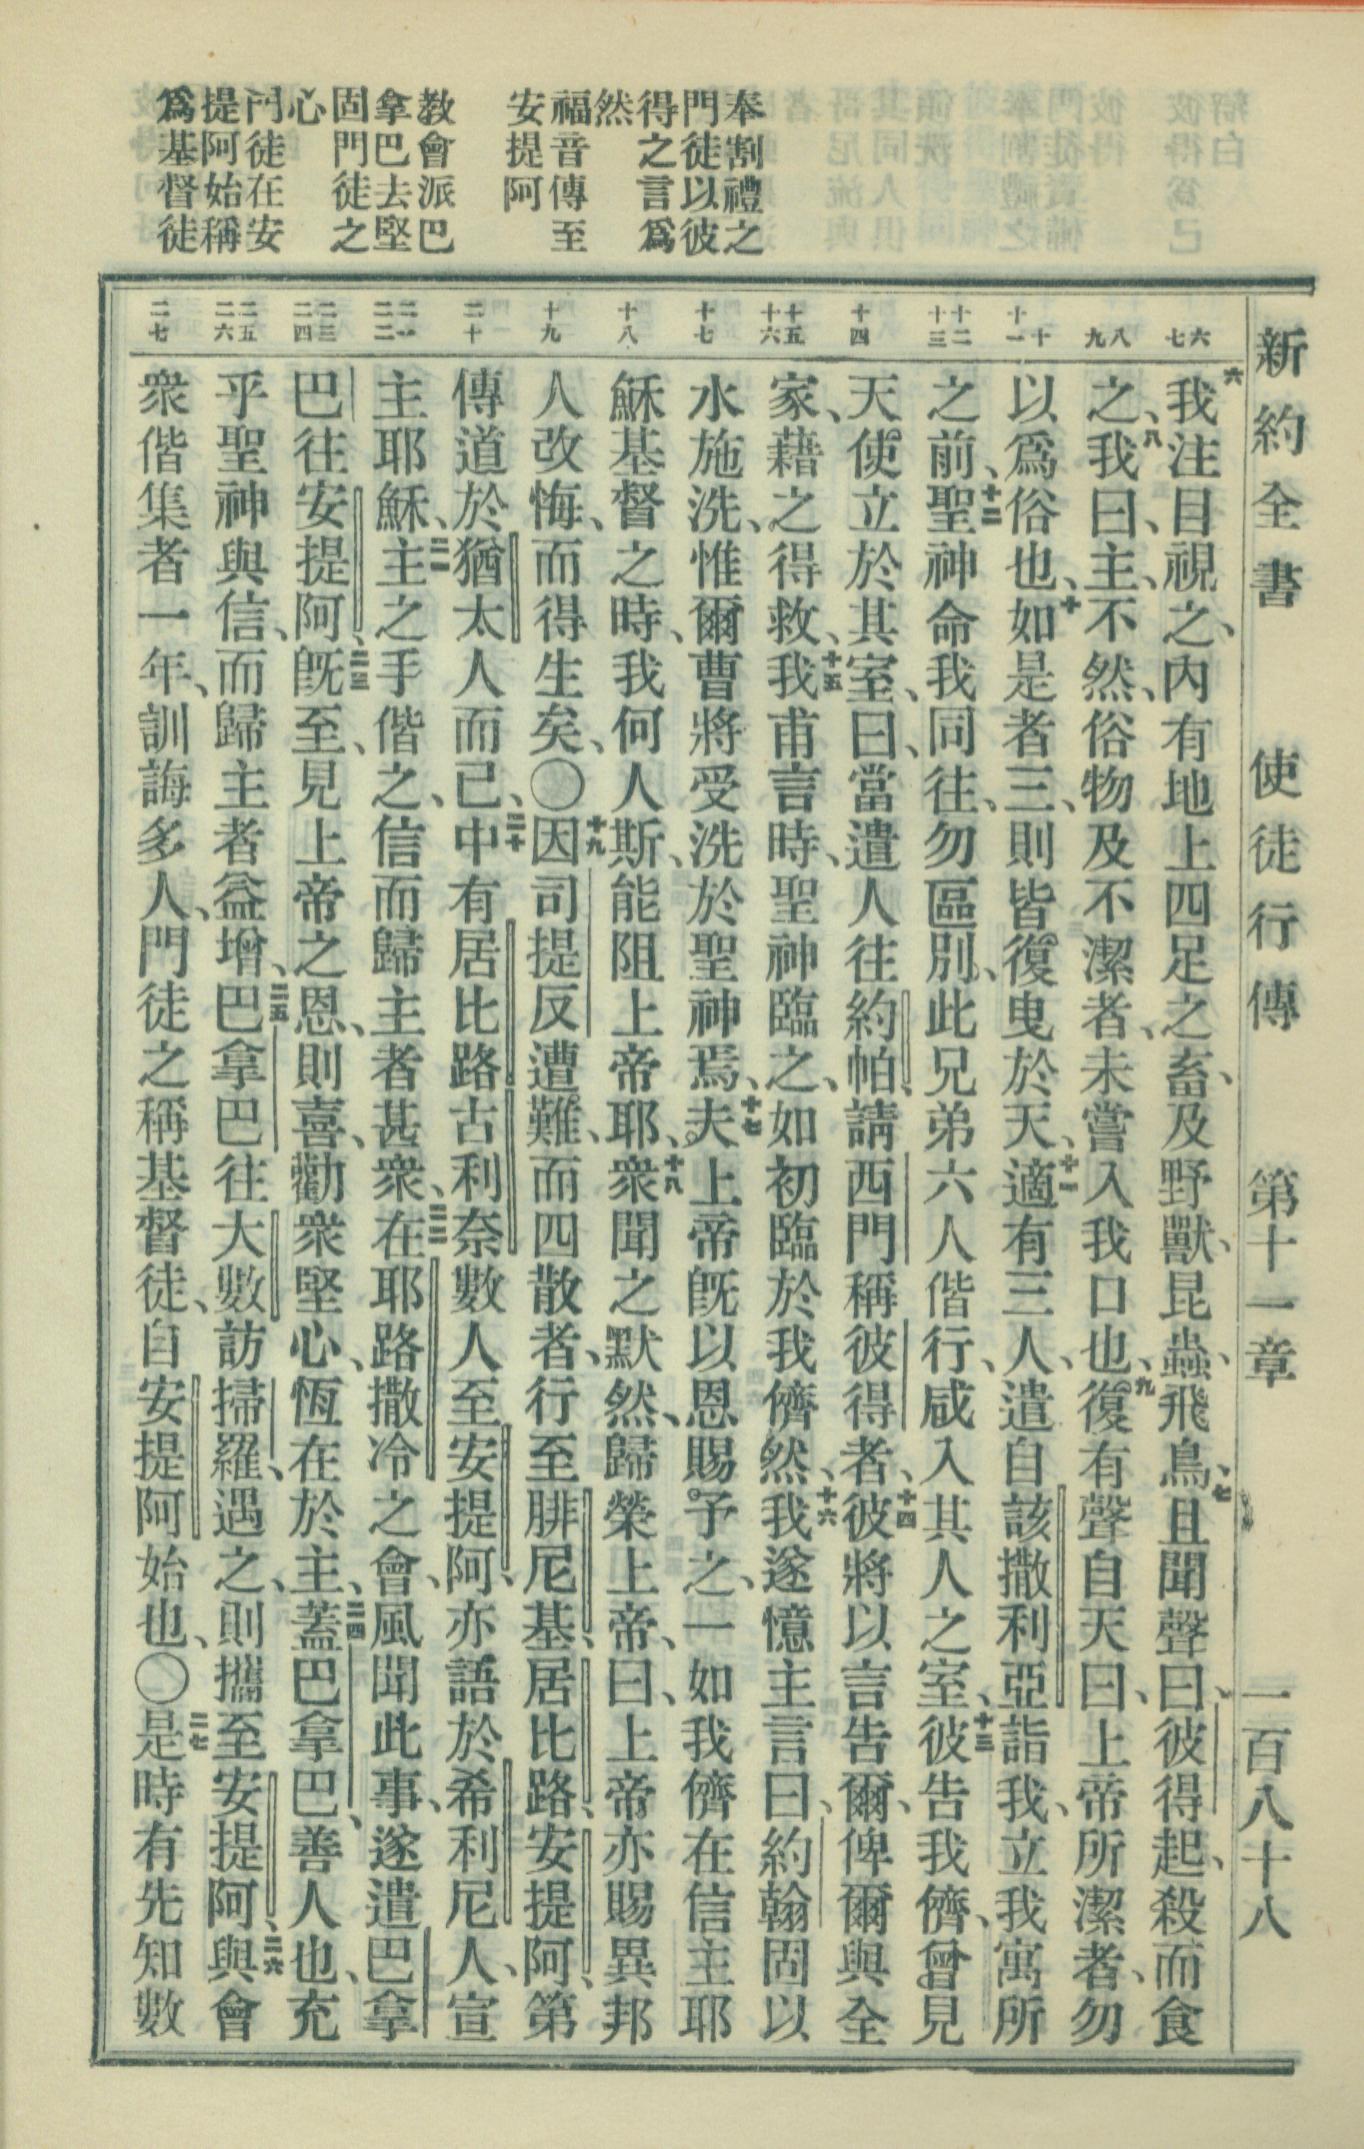 新約全書　使徒行傳　第十一章　一百八十八
奉割禮之
門徒以彼
得之言爲
然
福音傳至
安提阿
教會派巴
拿巴去堅
固門徒之
心
門徒在安
提阿始稱
爲基督徒
六
七
八
九
十
十一
十二
十三
十四
十五
十六
十七
十八
十九
二十
二一
二二
二三
二四
二五
二六
二七
六我注目視之、內有地上四足之畜、及野獸、昆蟲、飛鳥、七且聞聲曰、彼得起、殺而食
之、八我曰、主、不然、俗物及不潔者、未嘗入我口也、九復有聲自天曰、上帝所潔者、勿
以爲俗也、十如是者三、則皆復曳於天、十一適有三人、遣自該撒利亞詣我、立我寓所
之前、十二聖神命我同往、勿區別、此兄弟六人偕行、咸入其人之室、十三彼告我儕、曾見
天使立於其室、曰、當遣人往約帕、請西門稱彼得者、十四彼將以言告爾、俾爾與全
家、藉之得救、十五我甫言時、聖神臨之、如初臨於我儕然、十六我遂憶主言曰、約翰固以
水施洗、惟爾曹將受洗於聖神焉、十七夫上帝旣以恩賜予之、一如我儕在信主耶
穌基督之時、我何人斯、能阻上帝耶、十八衆聞之默然、歸榮上帝、曰、上帝亦賜異邦
人改悔、而得生矣、〇十九因司提反遭難、而四散者、行至腓尼基、居比路、安提阿、第
傳道於猶太人而已、二十中有居比路古利奈數人至安提阿、亦語於希利尼人、宣
主耶穌、二一主之手偕之、信而歸主者甚衆、二二在耶路撒冷之會、風聞此事、遂遣巴拿
巴往安提阿、二三旣至、見上帝之恩、則喜、勸衆堅心、恆在於主、二四蓋巴拿巴、善人也、充
乎聖神與信、而歸主者益增、二五巴拿巴往大數訪掃羅、遇之、則攜至安提阿、二六與會
衆偕集者一年、訓誨多人、門徒之稱基督徒、自安提阿始也、〇二七是時有先知數